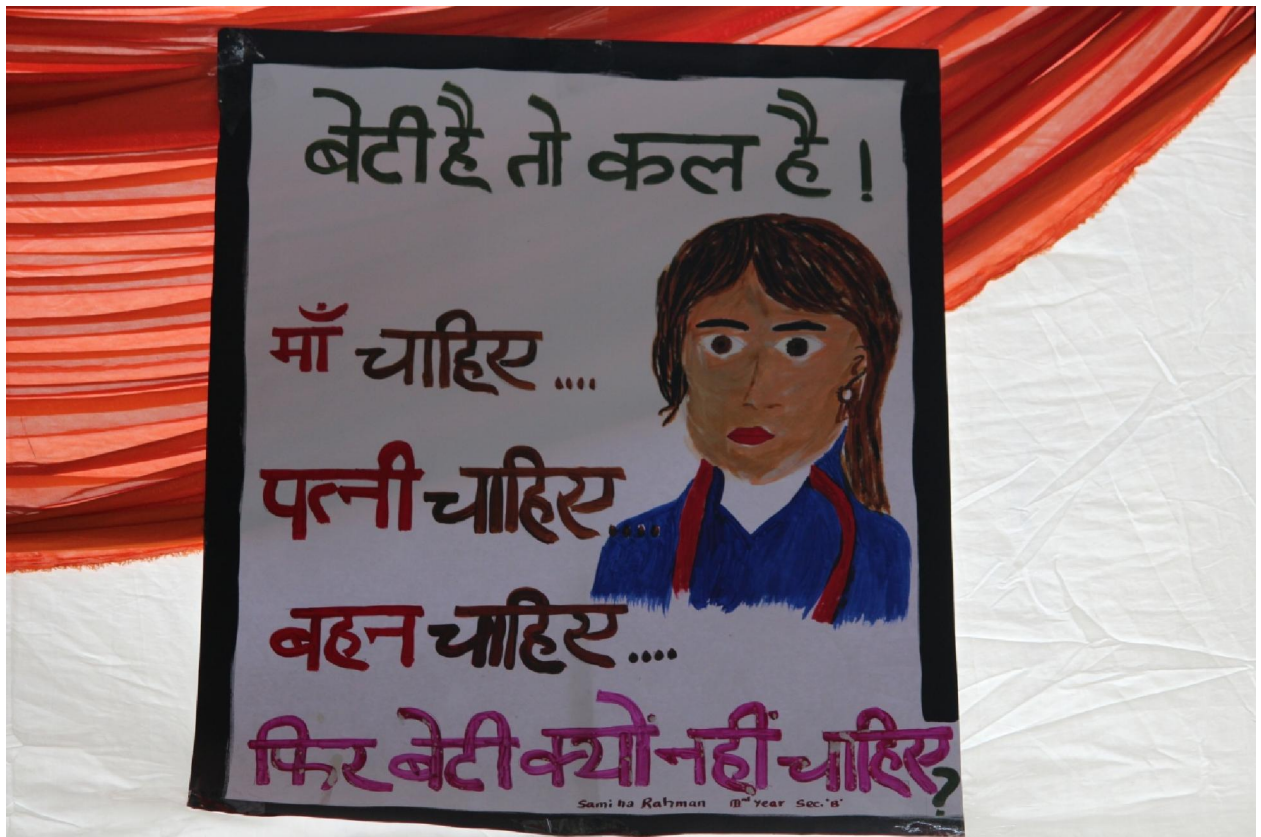 बेटी है तो कल है !
माँ चाहिए ....
पत्नी चाहिए ....
बहन चाहिए ....
फिर बेटी क्यों नहीं चाहिए ?
Rahman year Sec. 'B'